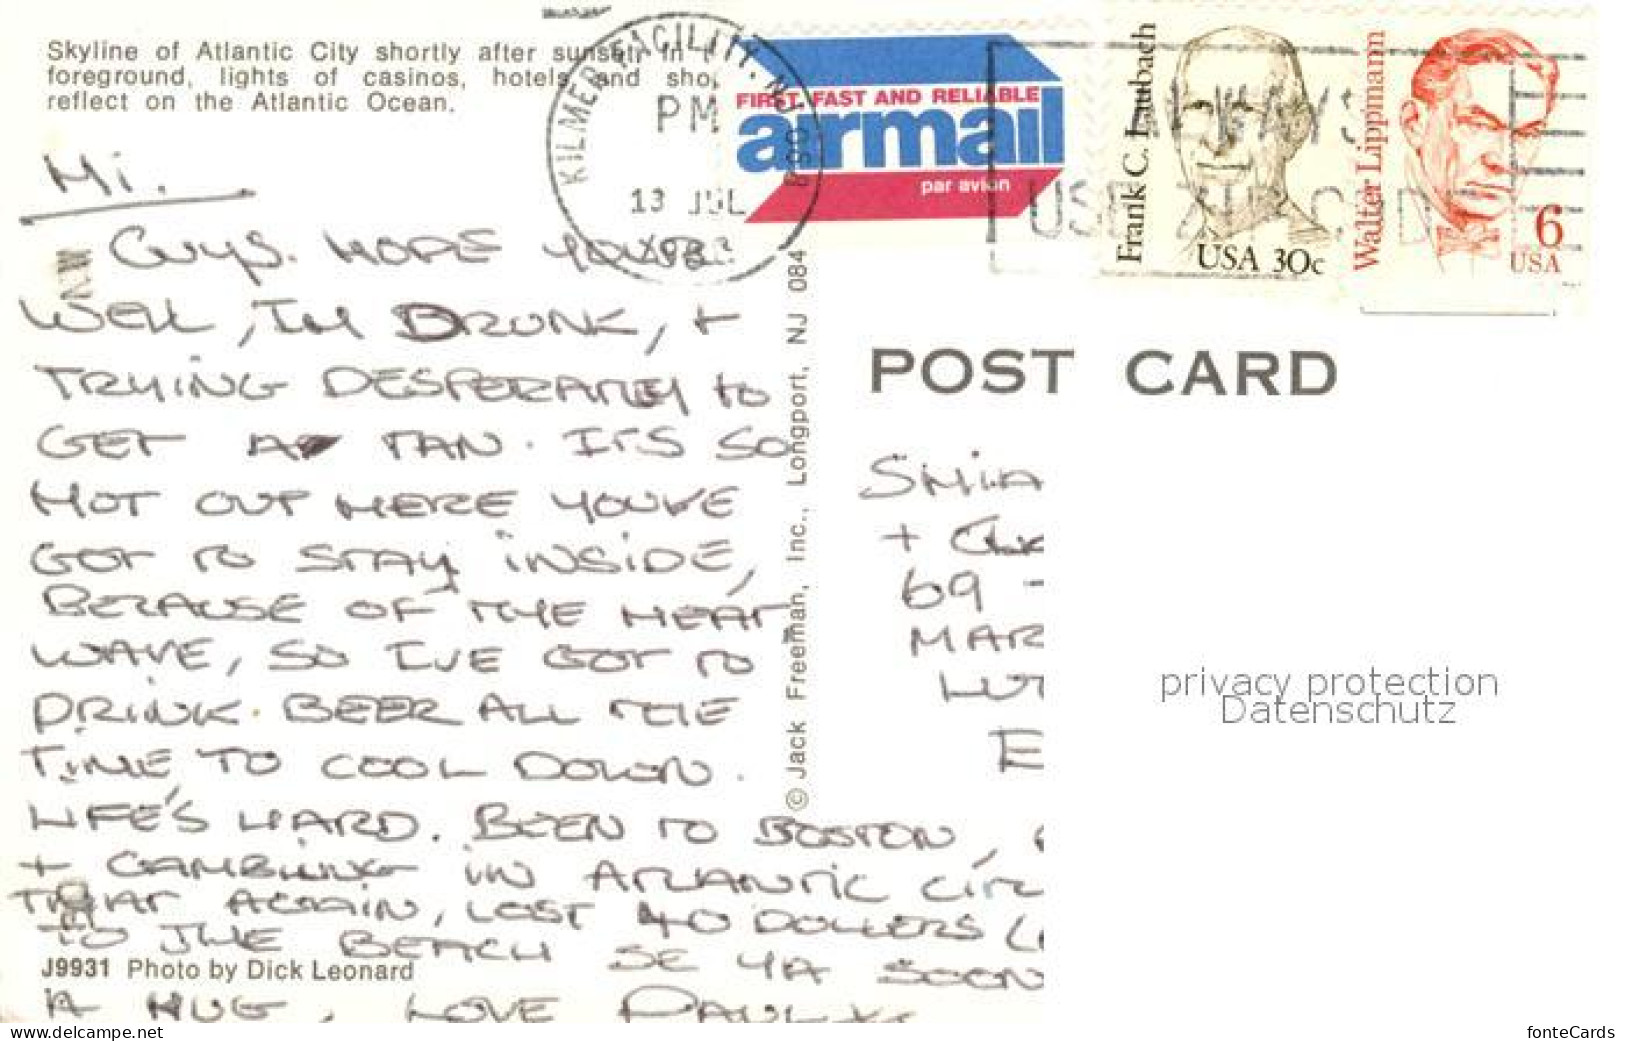 Skyline of Atlantic City shortly after sunset; in
foreground, lights of casinos, hotels and
reflect on the Atlantic Ocean.
KILMER FACILITY, NJ
PM
13 JUL
FIRST, FAST AND RELIABLE
airmail
par avion
USE ZIP CODE
Frank C. Laubach
USA 30c
Walter Lippmann
6
USA
Hi.
GUYS. HOPE YOU'RE
WELL, IM DRUNK, +
TRYING DESPERATELY to
GET A TAN. IT'S SO
HOT OUT HERE YOUVE
GOT TO STAY INSIDE,
BECAUSE OF THE HEAT
WAVE, SO I'VE GOT TO
DRINK BEER ALL THE
TIME, TO COOL DOWN.
LIFE'S HARD. BEEN TO BOSTON,
+ GAMBLING IN ATLANTIC
THAT AGAIN, LOST 40 DOLLERS
TO THE BEACH SE YA SOON
A HUG, LOVE PAUL
J9931 Photo by Dick Leonard
© Jack Freeman, Inc., Longport, NJ 084
POST CARD
+
69
MAR
LUT
E
privacy protection
Datenschutz
www.delcampe.net
fonteCards